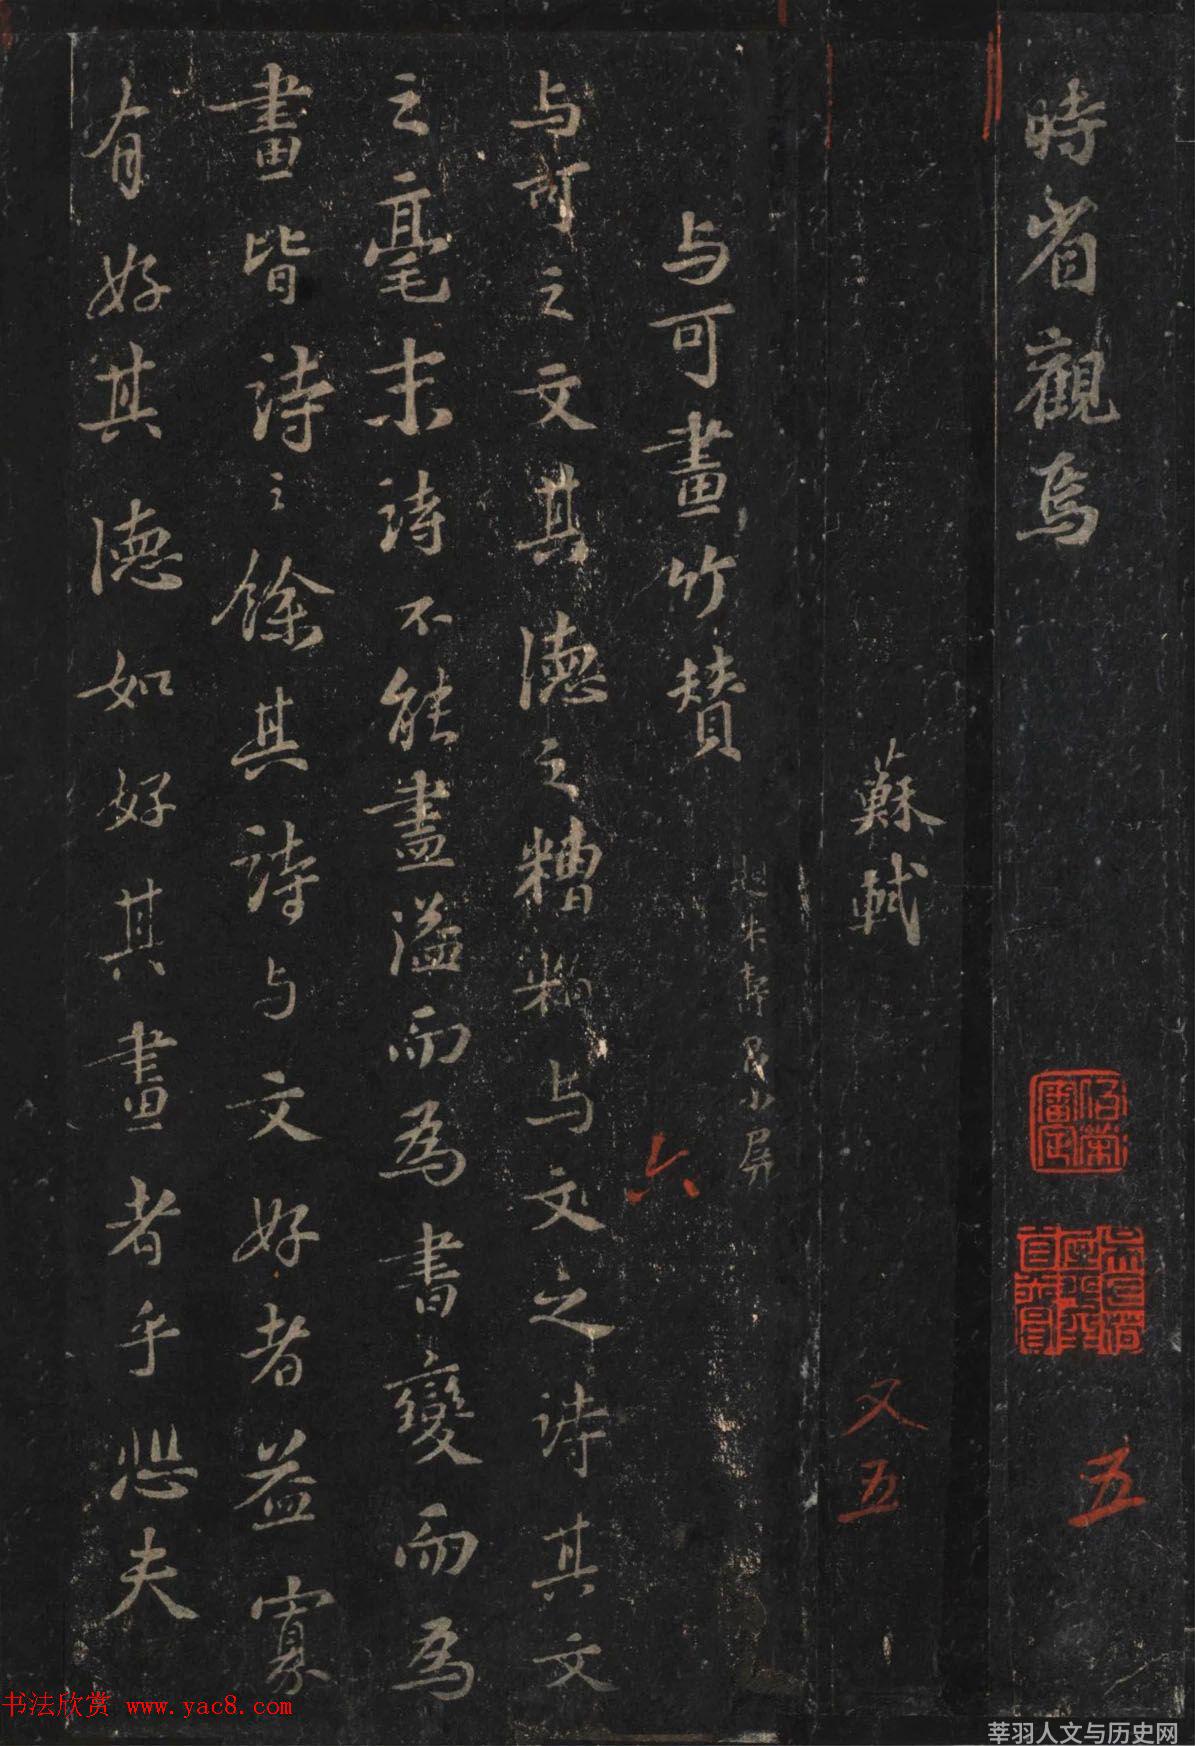 時省觀焉
伯榮審定
吳氏荷屋平生真賞
五
蘇軾
又五
朱壽昌小屏
与可畫竹贊
六
与可之文其德之糟粕与文之詩其文
之毫末詩不能盡溢而為書變而為
畫皆詩之餘其詩与文好者益寡
有好其德如好其畫者乎悲夫
书法欣赏 www.yac8.com
莘羽人文与历史网